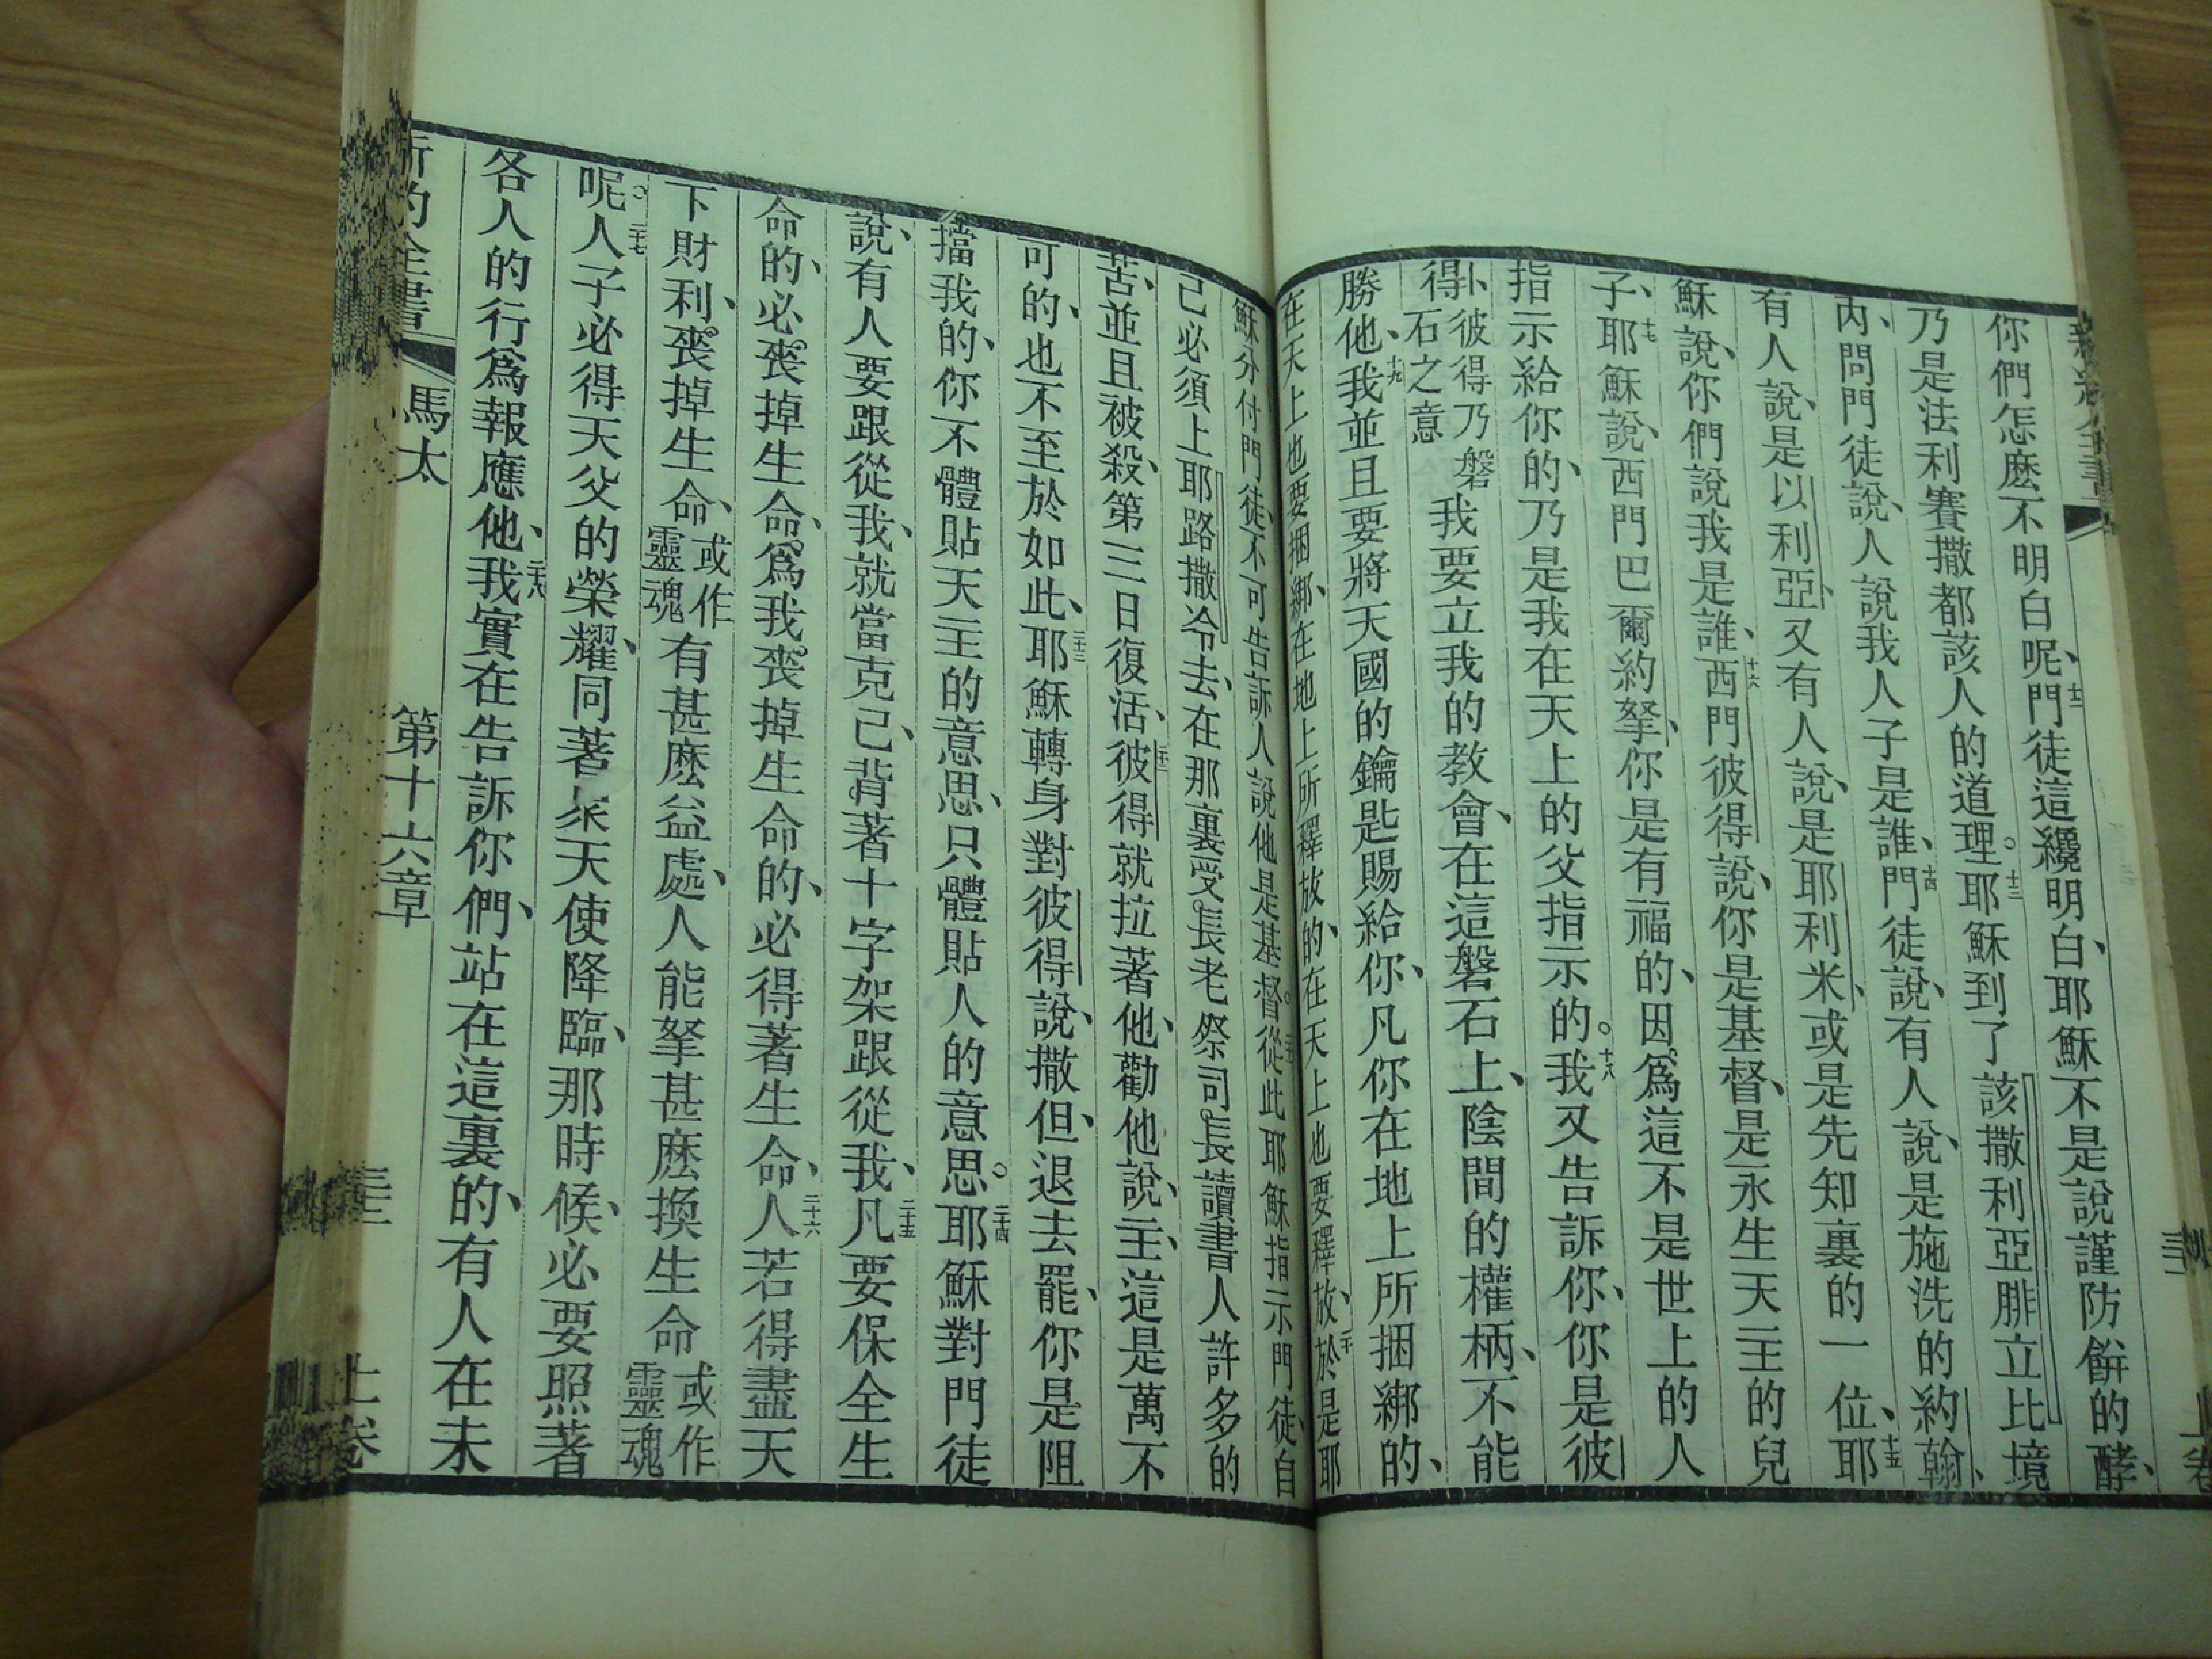 你們怎麽不明白呢、十二門徒這纔明白、耶穌不是說謹防餅的酵、
乃是法利賽撒都該人的道理。十三耶穌到了該撒利亞腓立比境
內、問門徒說、人說我人子是誰、十四門徒說、有人說、是施洗的約翰、
有人說、是以利亞、又有人說、是耶利米、或是先知裏的一位、十五耶
穌說、你們說我是誰、十六西門彼得說、你是基督、是永生天主的兒
子、十七耶穌說、西門巴爾約拏、你是有福的、因爲這不是世上的人
指示給你的、乃是我在天上的父指示的。十八我又告訴你、你是彼
得、卜彼得乃磐石之意我要立我的教會、在這磐石上、陰間的權柄、不能
勝他、十九我並且要將天國的鑰匙賜給你、凡你在地上所捆綁的、
在天上也要捆綁、在地上所釋放的、在天上也要釋放、二十於是耶
穌分付門徒、不可告訴人說他是基督。二十一從此耶穌指示門徒、自
己必須上耶路撒冷去、在那裏受長老祭司長讀書人許多的
苦、並且被殺、第三日復活、二十二彼得就拉著他、勸他說、主、這是萬不
可的、也不至於如此、二十三耶穌轉身對彼得說、撒但、退去罷、你是阻
擋我的、你不體貼天主的意思、只體貼人的意思。二十四耶穌對門徒
說、有人要跟從我、就當克己、背著十字架跟從我、二十五凡要保全生
命的、必喪掉生命、爲我喪掉生命的、必得著生命、二十六人若得盡天
下財利、喪掉生命、或作靈魂有甚麽益處、人能拏甚麽換生命或作靈魂
呢。二十七人子必得天父的榮耀、同著衆天使降臨、那時候、必要照著
各人的行爲報應他、二十八我實在告訴你們、站在這裏的、有人在未
新約全書 馬太 第十六章 三十二 上卷